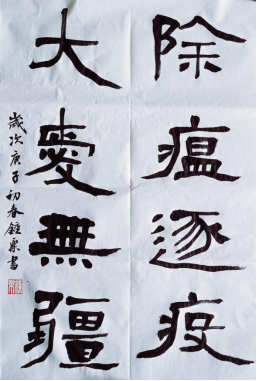 除瘟逐疫
大愛無疆
歲次庚子初春鍾栗書